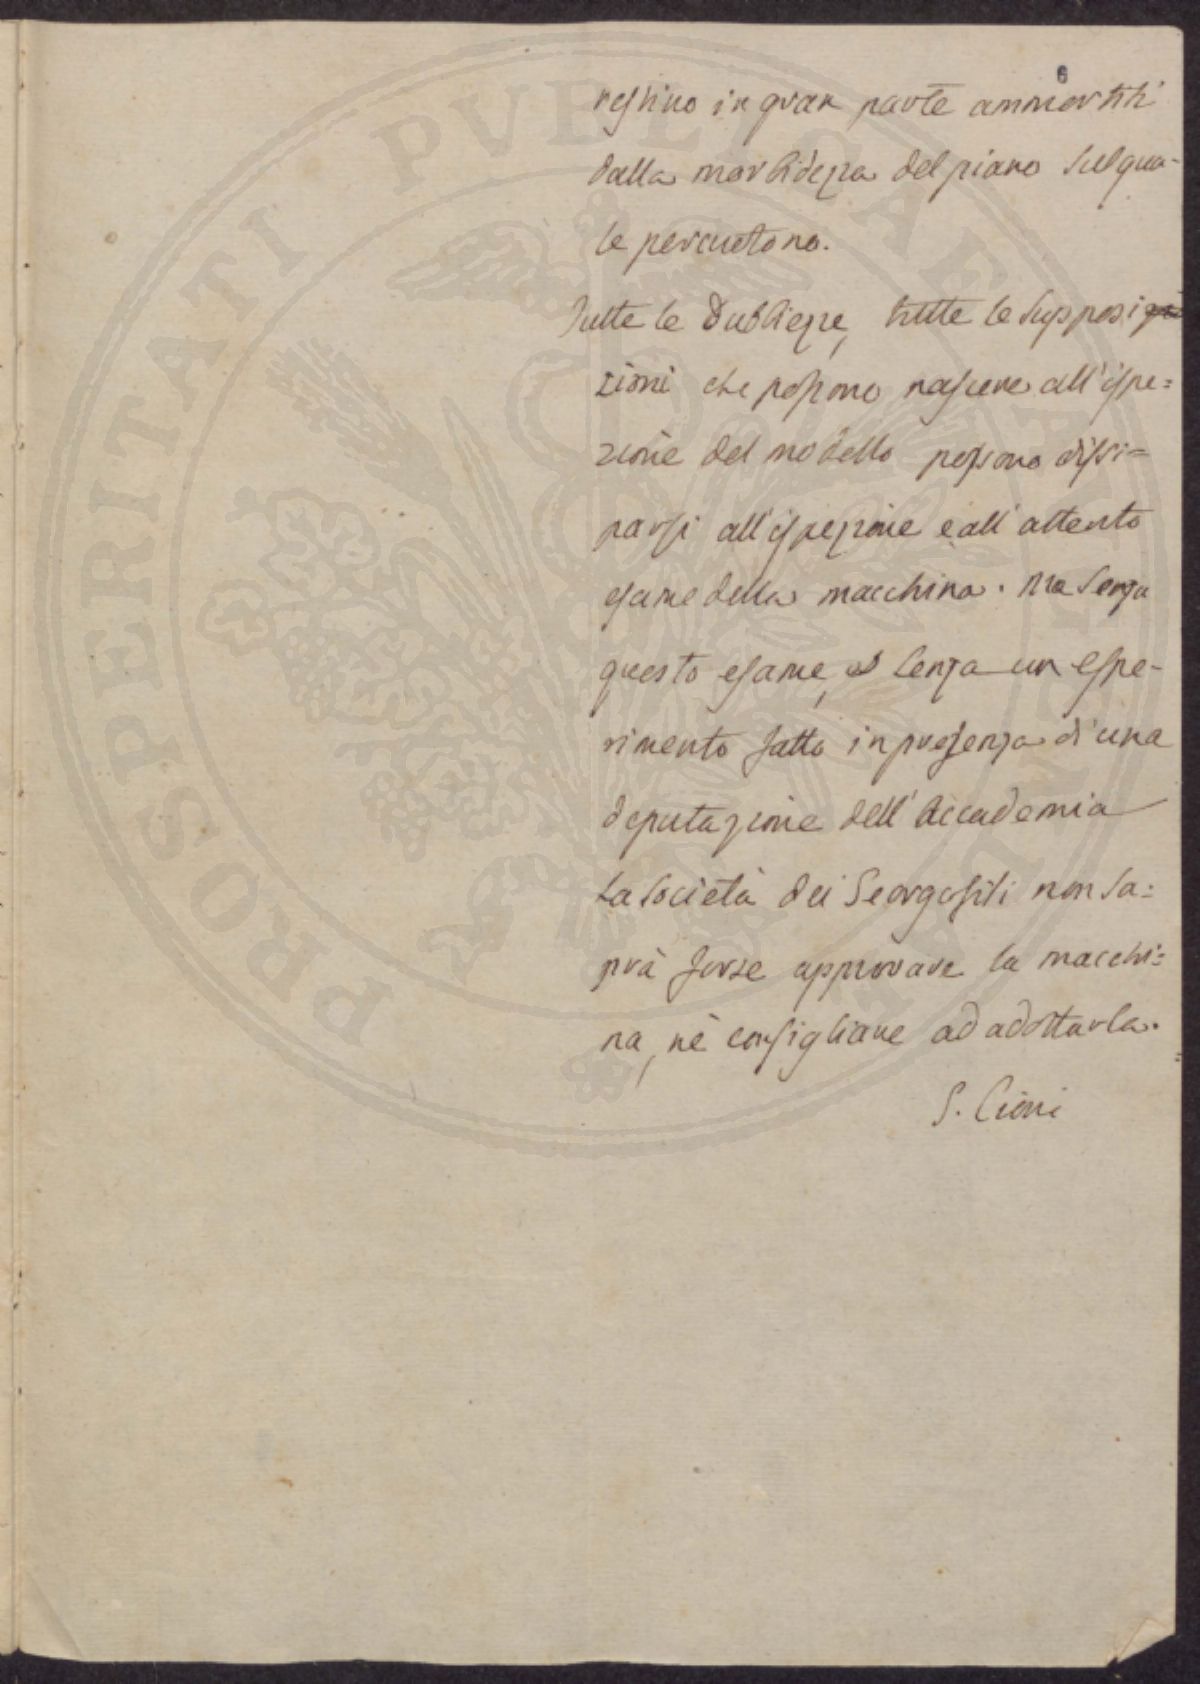 6
restino in gran parte ammortiti
dalla morbidezza del piano sul qua-
le percuotono.
Tutte le dubbiezze, tutte le supposi
zioni che possono nascere all'ispe=
zione del modello possono dissi=
parsi all'ispezione e all'attento
esame della macchina. Ma senza
questo esame, e senza un espe-
rimento fatto in presenza di una
deputazione dell'Accademia
La Società dei Georgofili non sa=
prà forse approvare la macchi=
na, nè consigliare ad adottarla.
G. Cioni
PROSPERITATI PVBLICAE AVGENDAE